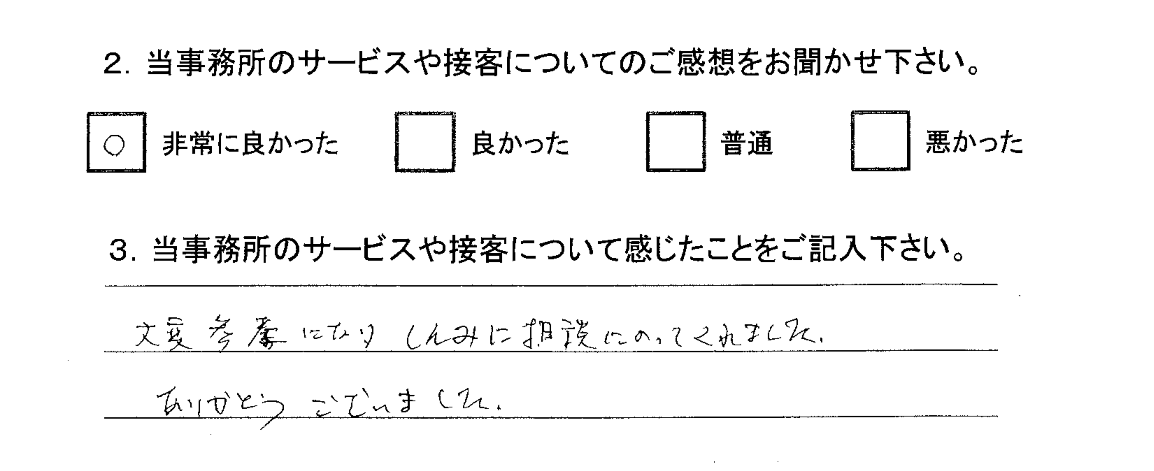 2. 当事務所のサービスや接客についてのご感想をお聞かせ下さい。
○ 非常に良かった 良かった 普通 悪かった
3. 当事務所のサービスや接客について感じたことをご記入下さい。
大変参考になりしんみに相談にのってくれました.
ありがとうございました.